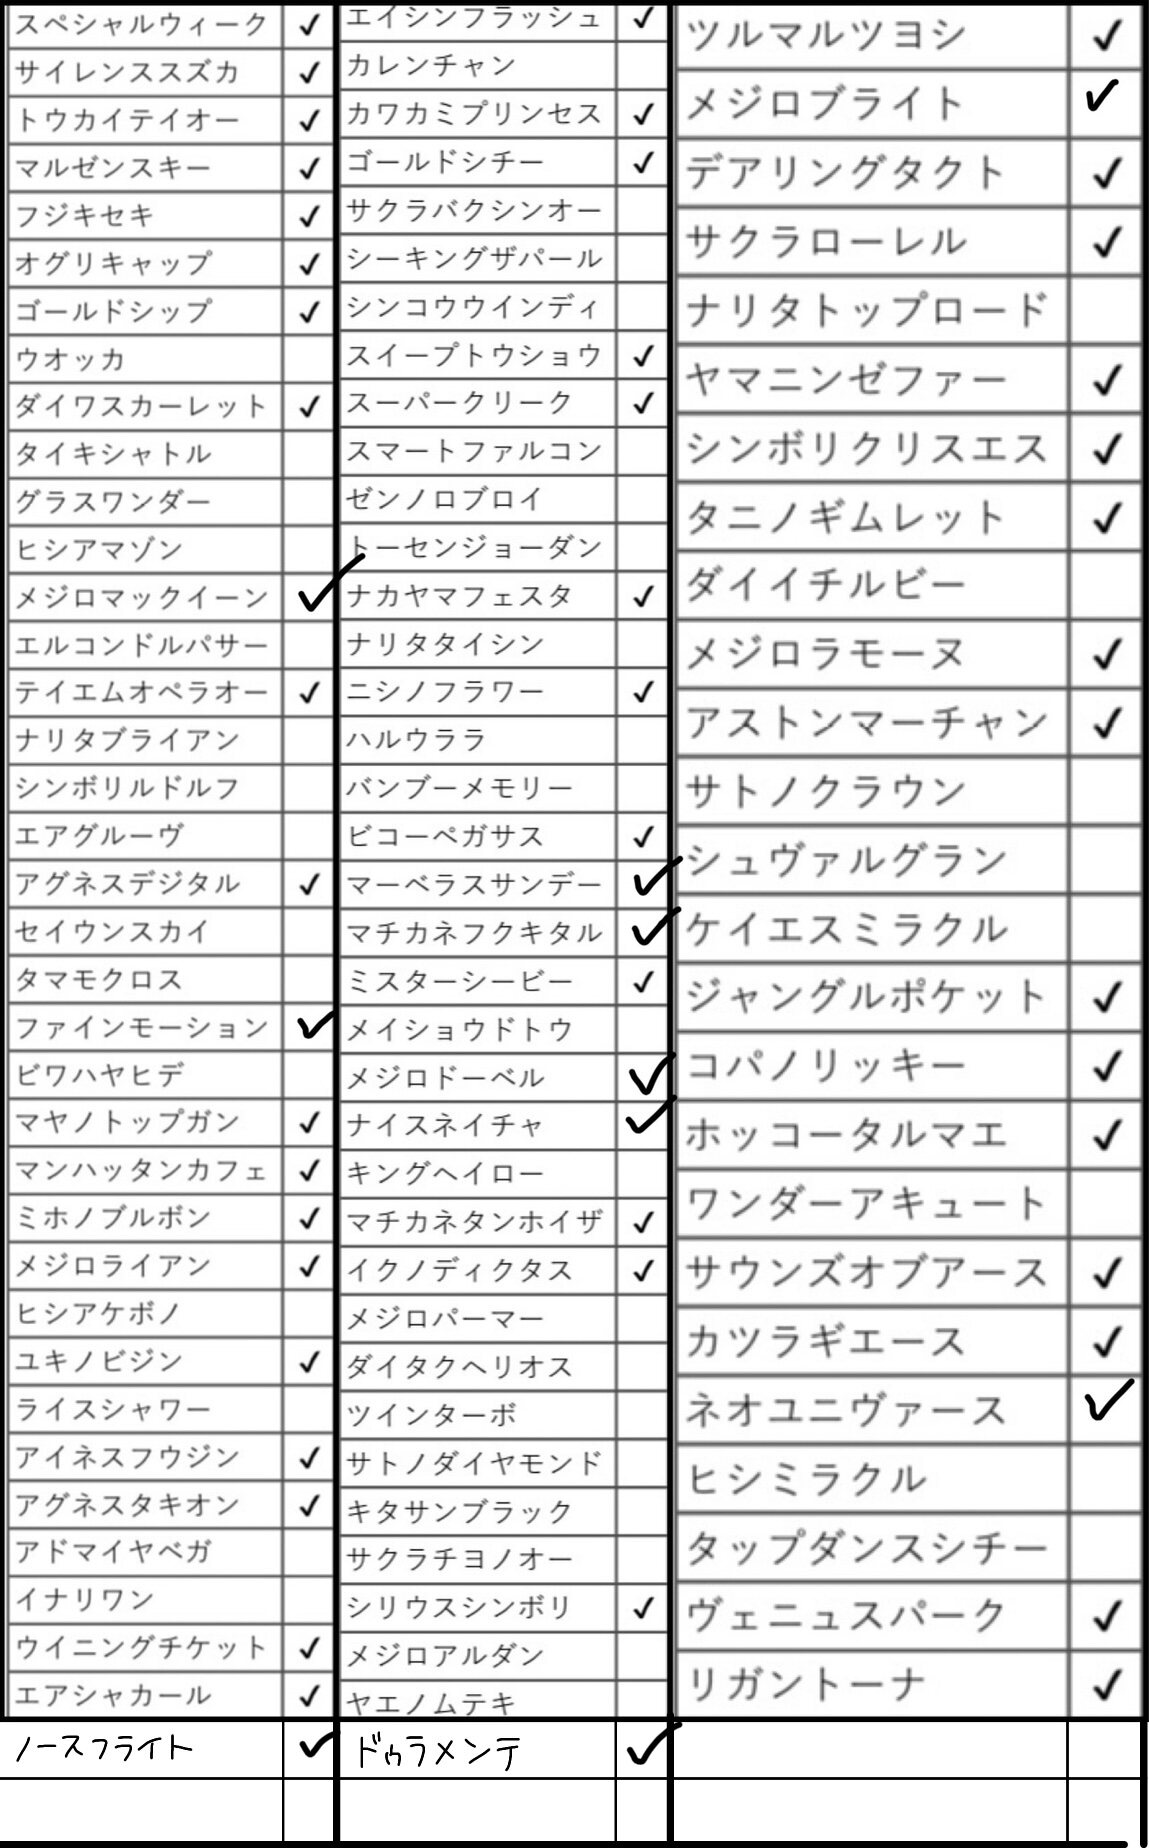 スペシャルウィーク ✓
サイレンススズカ ✓
トウカイテイオー ✓
マルゼンスキー ✓
フジキセキ ✓
オグリキャップ ✓
ゴールドシップ ✓
ウオッカ
ダイワスカーレット ✓
タイキシャトル
グラスワンダー
ヒシアマゾン
メジロマックイーン ✓
エルコンドルパサー
テイエムオペラオー ✓
ナリタブライアン
シンボリルドルフ
エアグルーヴ
アグネスデジタル ✓
セイウンスカイ
タマモクロス
ファインモーション ✓
ビワハヤヒデ
マヤノトップガン ✓
マンハッタンカフェ ✓
ミホノブルボン ✓
メジロライアン ✓
ヒシアケボノ
ユキノビジン ✓
ライスシャワー
アイネスフウジン ✓
アグネスタキオン ✓
アドマイヤベガ
イナリワン
ウイニングチケット ✓
エアシャカール ✓
ノースフライト ✓
エイシンフラッシュ ✓
カレンチャン
カワカミプリンセス ✓
ゴールドシチー ✓
サクラバクシンオー
シーキングザパール
シンコウウインディ
スイープトウショウ ✓
スーパークリーク ✓
スマートファルコン
ゼンノロブロイ
トーセンジョーダン
ナカヤマフェスタ ✓
ナリタタイシン
ニシノフラワー ✓
ハルウララ
バンブーメモリー
ビコーペガサス ✓
マーベラスサンデー ✓
マチカネフクキタル ✓
ミスターシービー ✓
メイショウドトウ
メジロドーベル ✓
ナイスネイチャ ✓
キングヘイロー
マチカネタンホイザ ✓
イクノディクタス ✓
メジロパーマー
ダイタクヘリオス
ツインターボ
サトノダイヤモンド
キタサンブラック
サクラチヨノオー
シリウスシンボリ ✓
メジロアルダン
ヤエノムテキ
ドゥラメンテ ✓
ツルマルツヨシ ✓
メジロブライト ✓
デアリングタクト ✓
サクラローレル ✓
ナリタトップロード
ヤマニンゼファー ✓
シンボリクリスエス ✓
タニノギムレット ✓
ダイイチルビー
メジロラモーヌ ✓
アストンマーチャン ✓
サトノクラウン
シュヴァルグラン
ケイエスミラクル
ジャングルポケット ✓
コパノリッキー ✓
ホッコータルマエ ✓
ワンダーアキュート
サウンズオブアース ✓
カツラギエース ✓
ネオユニヴァース ✓
ヒシミラクル
タップダンスシチー
ヴェニュスパーク ✓
リガントーナ ✓